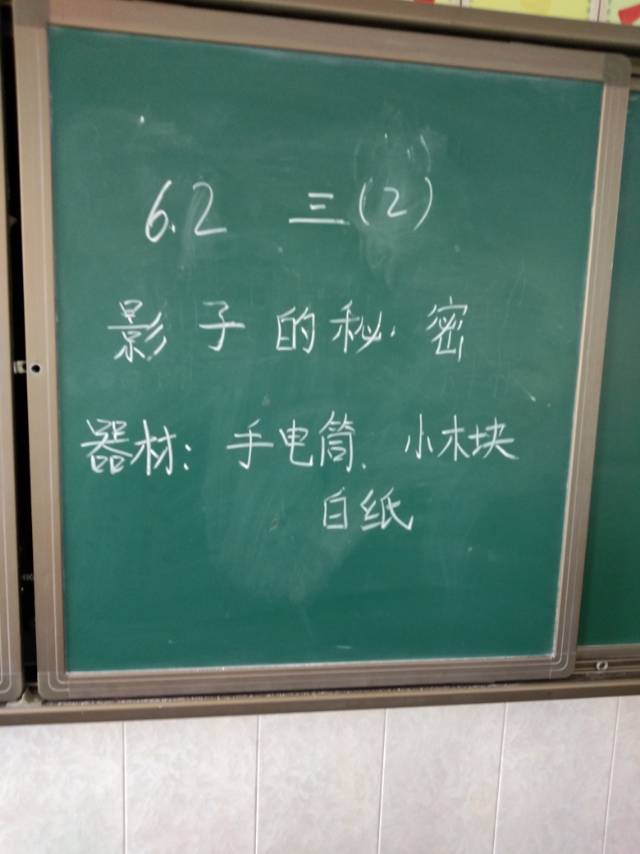 6.2 三(2)
影子的秘密
器材：手电筒、小木块
白纸